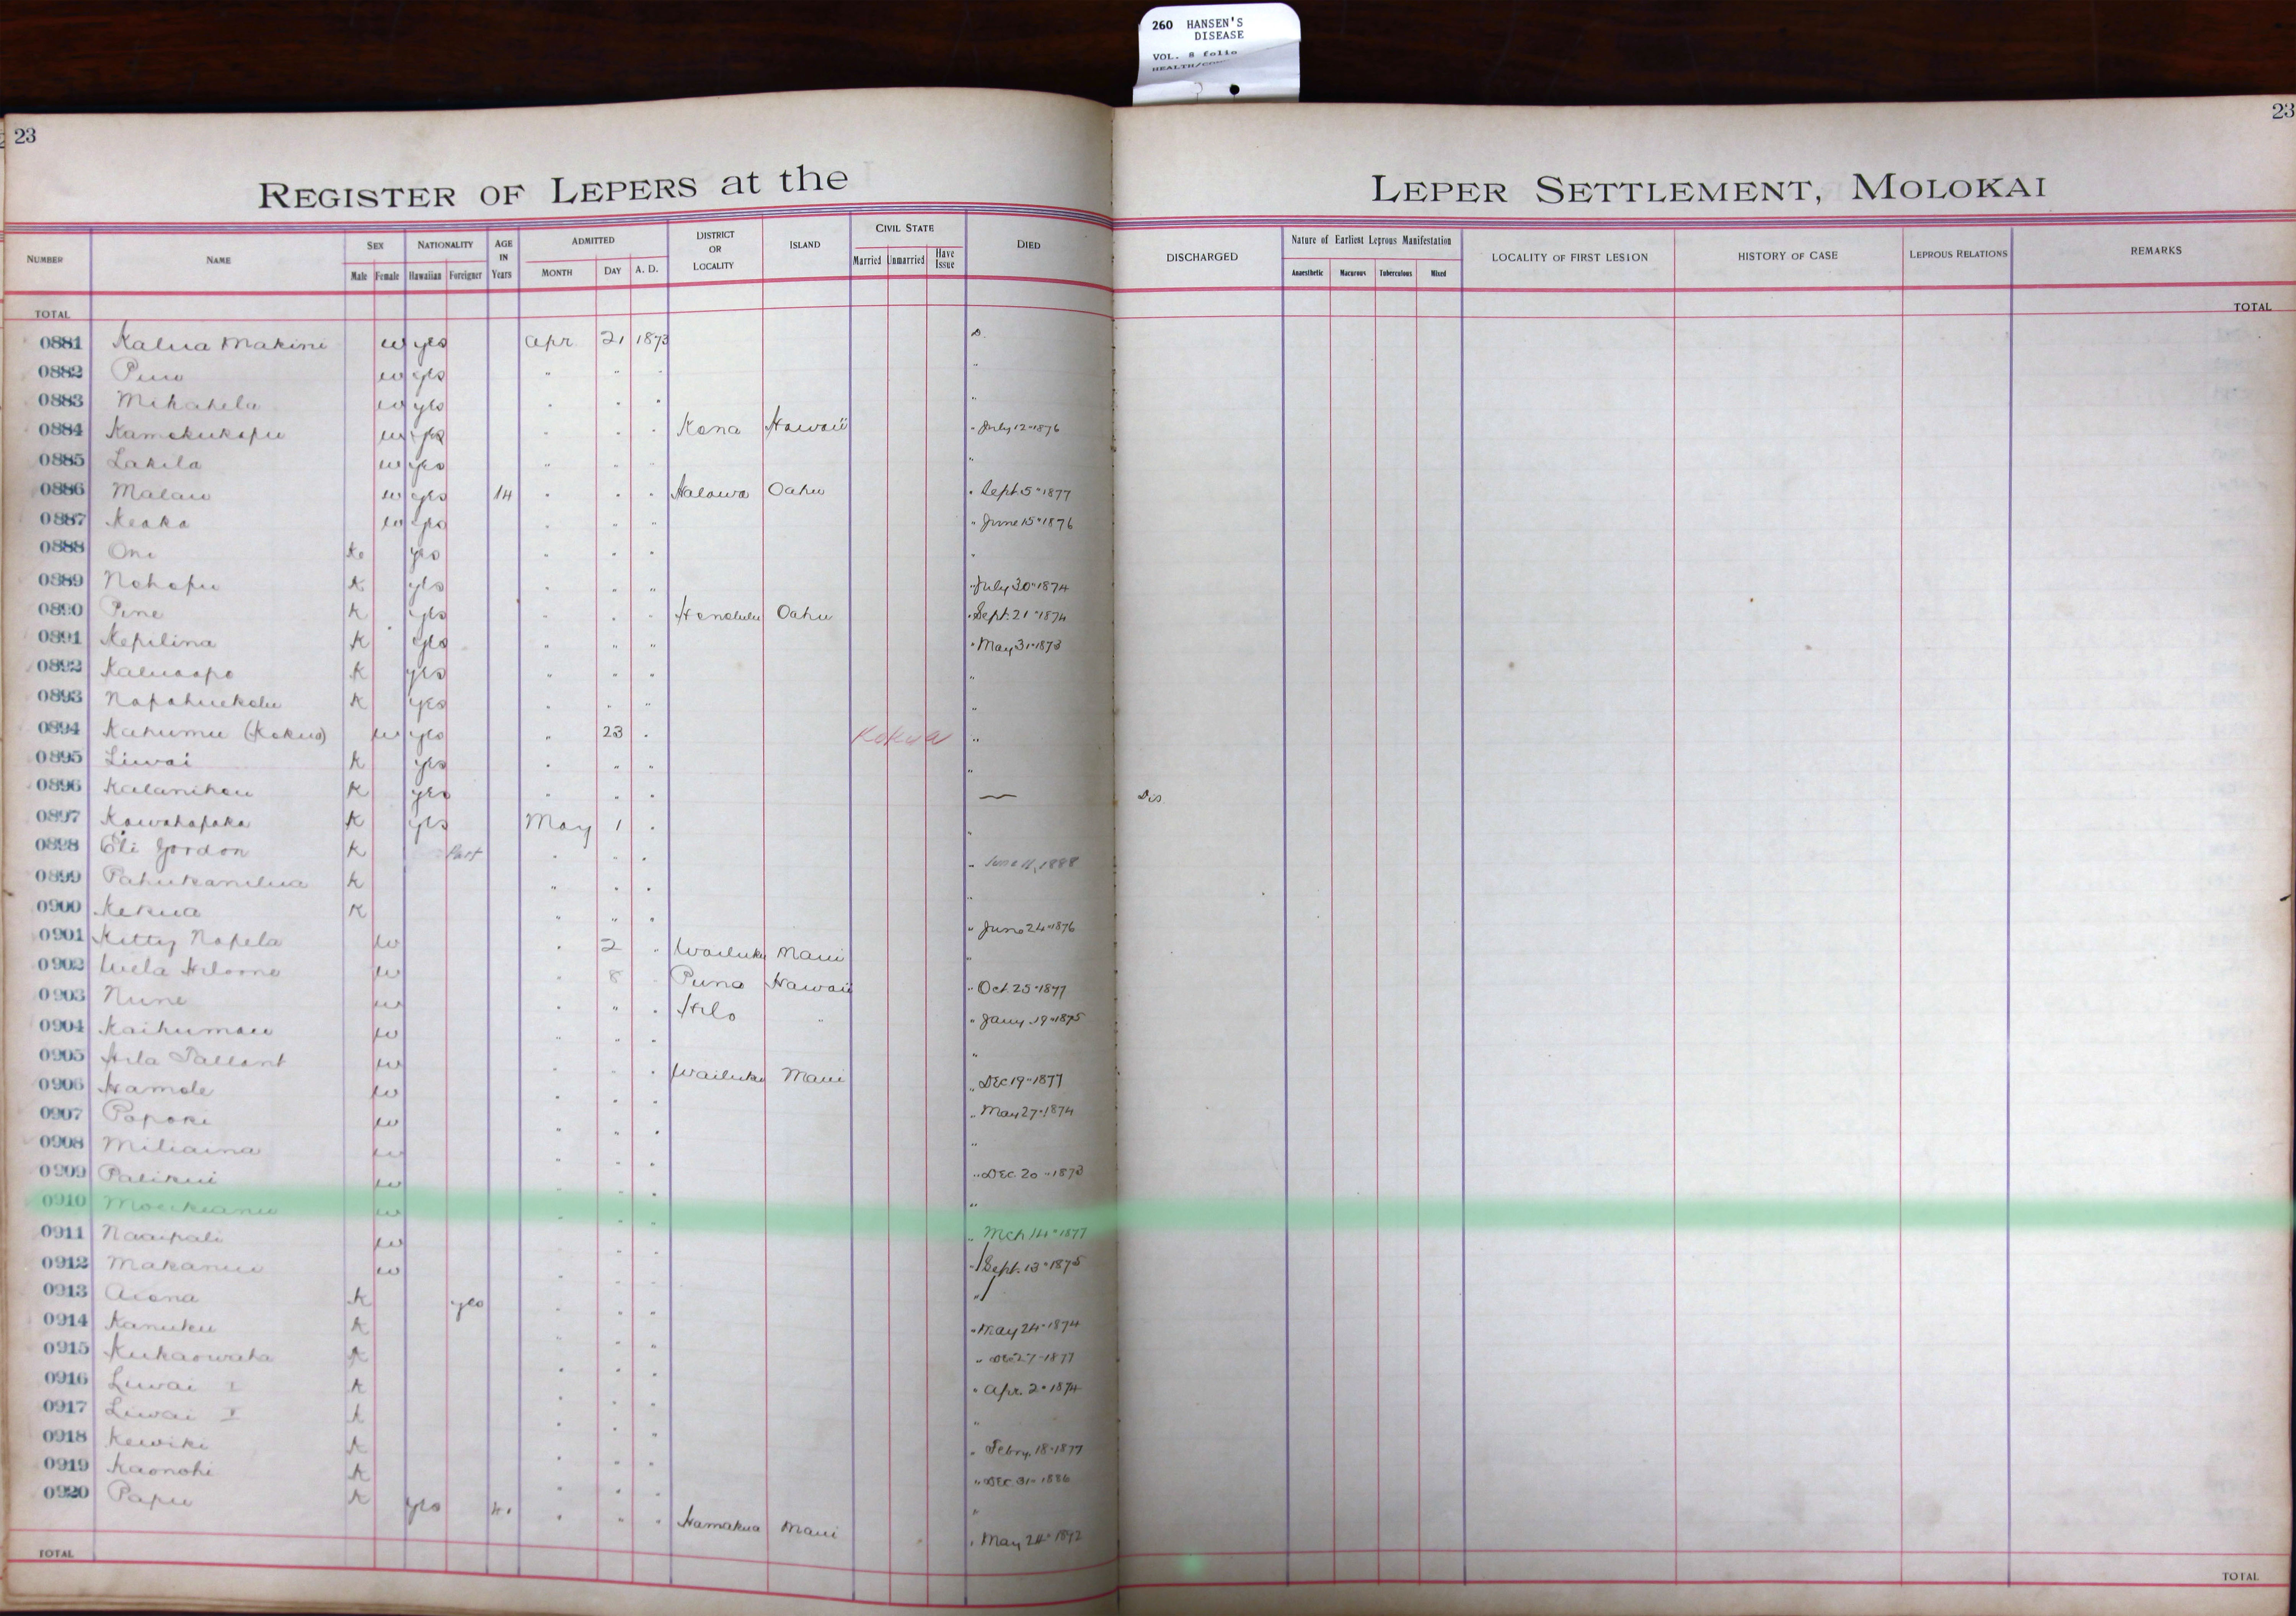 260 HANSEN'S
DISEASE
VOL. 8 folio
23
23
REGISTER OF LEPERS at the LEPER SETTLEMENT, MOLOKAI
NUMBER NAME SEX NATIONALITY AGE IN Years ADMITTED DISTRICT OR LOCALITY ISLAND CIVIL STATE DIED DISCHARGED Nature of Earliest Leprous Manifestation LOCALITY OF FIRST LESION HISTORY OF CASE LEPROUS RELATIONS REMARKS
Male Female Hawaiian Foreigner MONTH DAY A. D. Married Unmarried Have Issue Anaesthetic Macurous Tuberculous Mixed
TOTAL TOTAL
0881 Kalua Makini w yes Apr 21 1873 D.
0882 w yes " " " "
0883 Mikahela w yes " " " "
0884 Kamokukapu w yes " " " Kona Hawaii " July 12" 1876
0885 Lakila w yes " " " "
0886 Malau w yes 14 " " " Halawa Oahu " Sept. 5" 1877
0887 Keaka w yes " " " " June 15" 1876
0888 Oni K yes " " " "
0889 Nohopu K yes " " " " July 30" 1874
0890 Pine K yes " " " Honolulu Oahu " Sept. 21" 1874
0891 Kepilina K yes " " " " May 31" 1873
0892 K yes " " " "
0893 Napahuekolu K yes " " " "
0894 Kahumu (Kokua) w yes " 23 " Kokua "
0895 Liwai K yes " " " "
0896 Kalanihou K yes " " " — Dis
0897 Kawahapaka K yes May 1 " "
0898 Eli Gordon K Part " " " " June 11, 1888
0899 Pahukanilua K " " " "
0900 Kekua K " " " " June 24" 1876
0901 Kitty Napela w " 2 " Wailuku Maui "
0902 w " 8 " Puna Hawaii " Oct. 25" 1877
0903 Nune w " " " Hilo " " Jany. 19" 1875
0904 Kaihumau w " " " "
0905 Hila Tallant w " " " Wailuku Maui " Dec 19" 1877
0906 Hamole w " " " " May 27" 1874
0907 Papoki w " " " "
0908 Miliaina w " " " " Dec. 20" 1873
0909 Palikui w " " " "
0910 w " " " " Mch 14" 1877
0911 Naaipali w " " " " Sept. 13" 1875
0912 Makanui w " " " "
0913 Aiona K yes " " " " May 24" 1874
0914 Kanuku K " " " 27" 1877
0915 Kukaowaha K " " " " Apr. 2" 1874
0916 Liwai I K " " " "
0917 Liwai K " " " " Febry. 18" 1877
0918 Kewiki K " " " " Dec. 31" 1886
0919 Kaonohi K " " " "
0920 Papu K yes " " " Hamakua Maui " May 24" 1892
TOTAL TOTAL